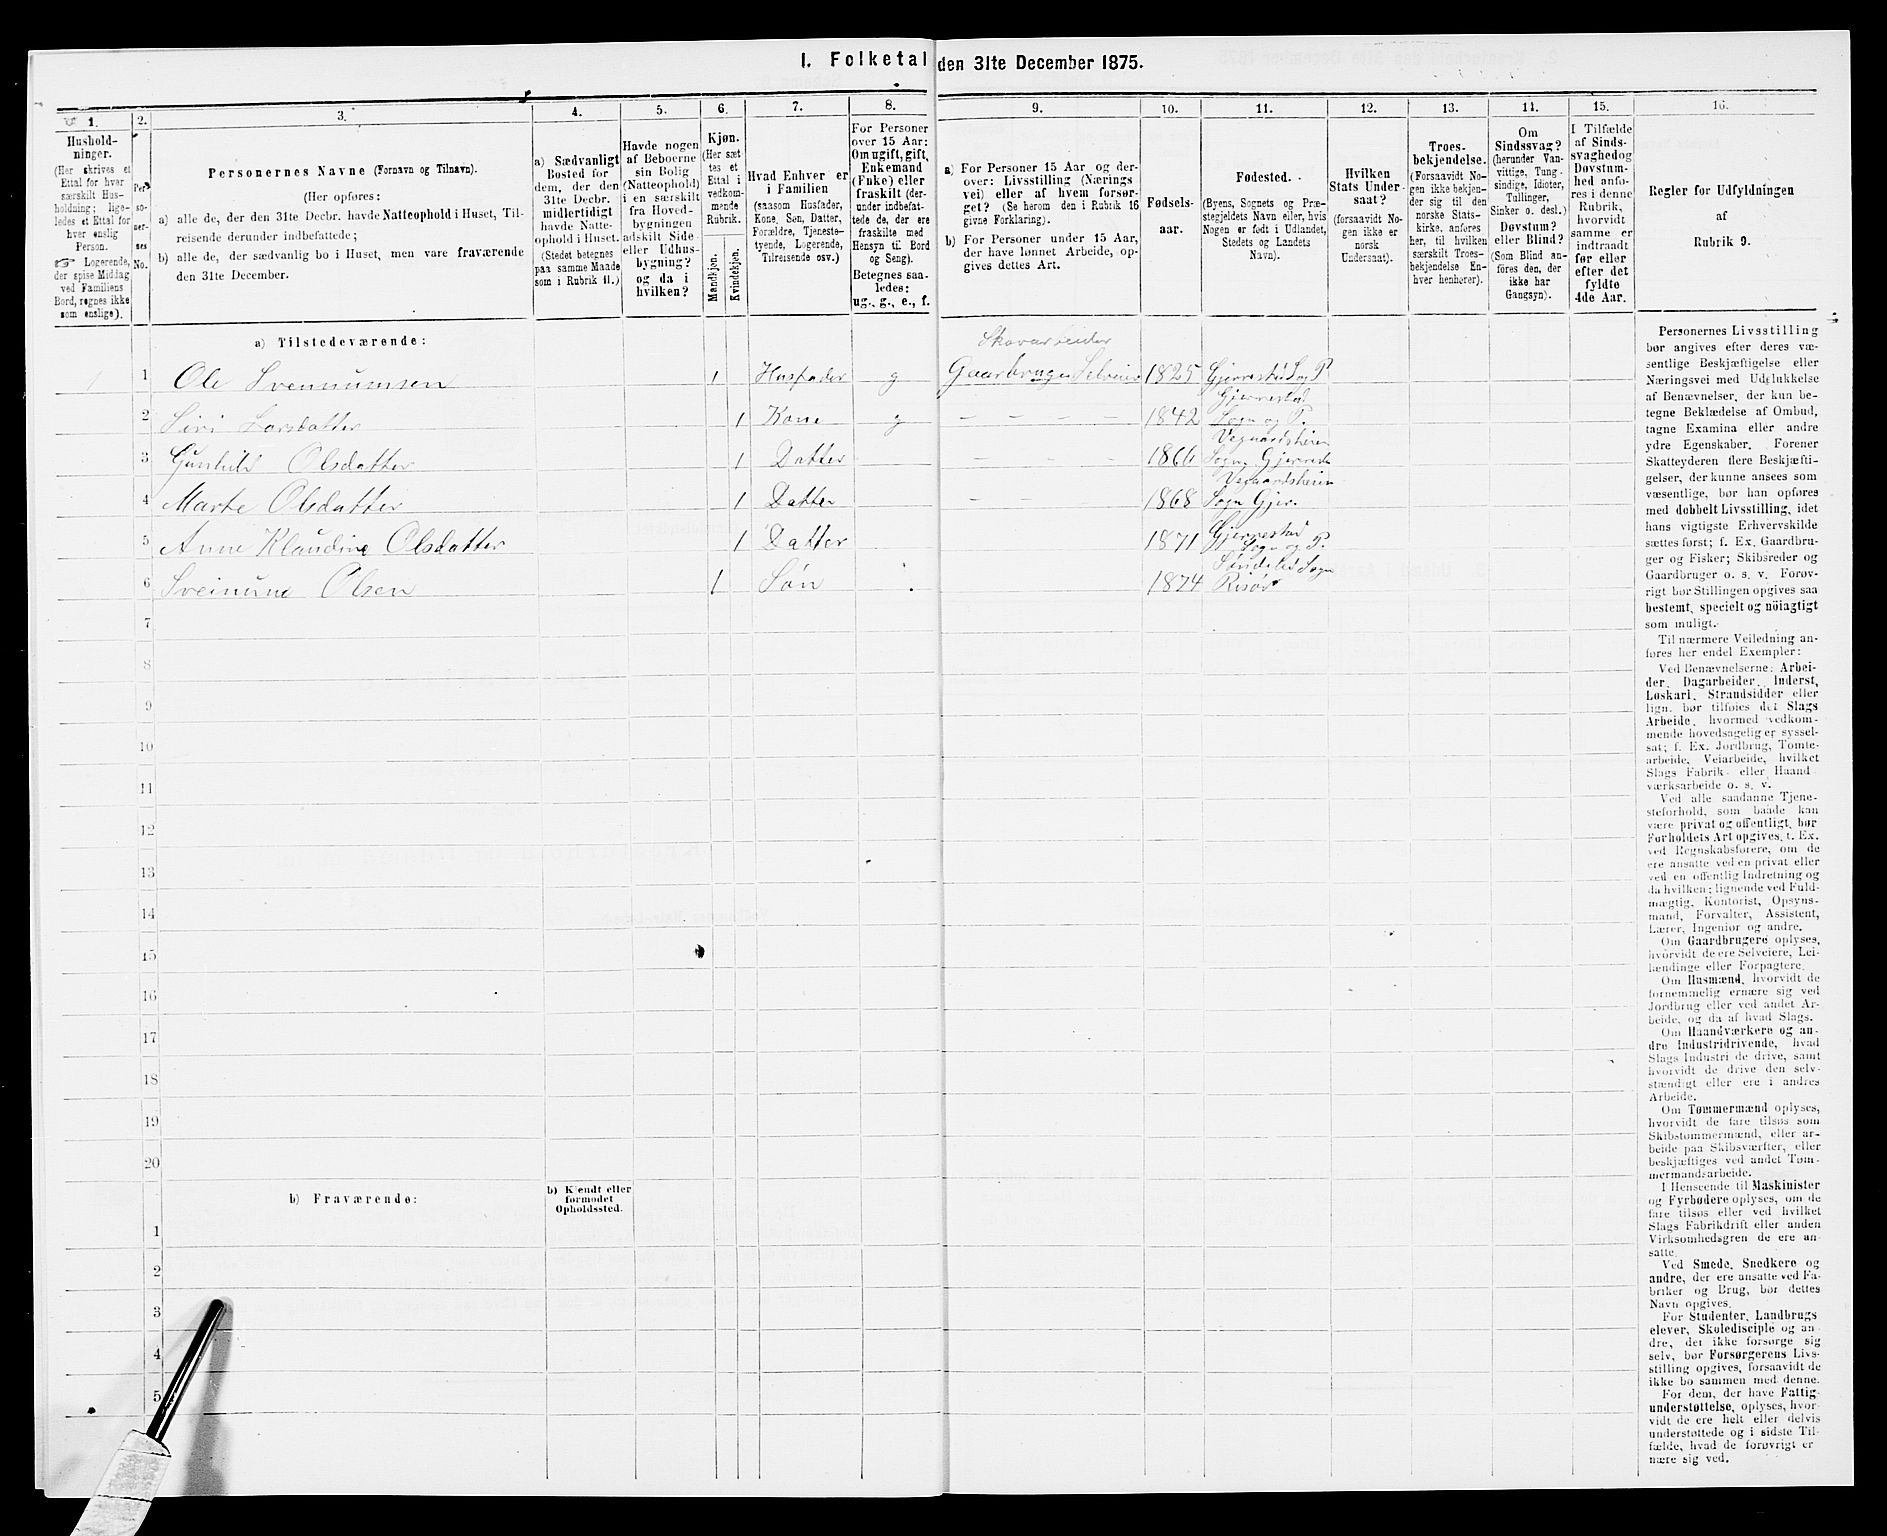 I. Folketal den 31te December 1875.
1.
Hushold-
ninger.
(Her skrives et
Ettal for hver
særskilt Hus-
holdning; lige-
ledes et Ettal for
hver enslig
Person.
☞ Logerende,
der spise Middag
ved Familiens
Bord, regnes ikke
som enslige).
2.
Per-
so-
ner-
nes
No.
3.
Personernes Navne (Fornavn og Tilnavn).
(Her opføres:
a) alle de, der den 31te Decbr. havde Natteophold i Huset, Til-
reisende derunder indbefattede;
b) alle de, der sædvanlig bo i Huset, men vare fraværende
den 31te December.
4.
a) Sædvanligt
Bosted for
dem, der den
31te Decbr.
midlertidigt
havde Natte-
ophold i Huset.
(Stedet betegnes
paa samme Maade
som i Rubrik 11.)
5.
Havde nogen
af Beboerne
sin Bolig
(Natteophold)
i en særskilt
fra Hoved-
bygningen
adskilt Side-
eller Udhus-
bygning?
og da i
hvilken?
6.
Kjøn.
(Her sæt
tes et
Ettal i
vedkom-
mende
Rubrik.
Mandkjøn.
Kvindekjøn.
7.
Hvad Enhver er
i Familien
(saasom Husfader,
Kone, Søn, Datter,
Forældre, Tjeneste-
tyende, Logerende,
Tilreisende osv.)
8.
For Personer
over 15 Aar:
Om ugift, gift,
Enkemand
(Enke) eller
fraskilt (der-
under indbefat-
tede de, der ere
fraskilte med
Hensyn til Bord
og Seng).
Betegnes saa-
ledes:
ug., g., e., f.
9.
a) For Personer 15 Aar og der-
over: Livsstilling (Nærings
vei) eller af hvem forsør-
get? (Se herom den i Rubrik 16
givne Forklaring).
b) For Personer under 15 Aar,
der have lønnet Arbeide, op-
gives dettes Art.
10.
Fødsels-
aar.
11.
Fødested.
(Byens, Sognets og Præ-
stegjeldets Navn eller, hvis
Nogen er født i Udlandet,
Stedets og Landets
Navn).
12.
Hvilken
Stats Under-
saat?
(forsaavidt No-
gen ikke er
norsk
Undersaat).
13.
Troes-
bekjendelse.
(Forsaavidt No-
gen ikke bekjen-
der sig til den
norske Stats-
kirke, anføres
her, til hvilken
særskilt Troes-
bekjendelse En-
hver henhører).
14.
Om
Sindssvag?
(herunder Van-
vittige, Tung-
sindige, Idioter,
Tullinger,
Sinker o. desl.)
Døvstum?
eller Blind?
(Som Blind an-
føres den, der
ikke har
Gangsyn).
15.
I Tilfælde
af Sinds-
svaghed og
Døvstum-
hed anfø-
res i denne
Rubrik,
hvorvidt
samme er
indtraadt
før eller
efter det
fyldte
4de Aar.
16.
Regler for Udfyldningen
af
Rubrik 9.
a) Tilstedeværende:
Skovarbeider
1 1 Ole Svennumsen 1 Husfader g Gaardbruger Selveier 1825 Gjerrestad S og P
Gjerrestad
2 Siri Larsdatter 1 Kone g — — — 1842 Sogn og P.
Vegaardsheien
3 Gunhild Olsdatter 1 Datter — — — 1866 Sogn Gjerrede
Vegaardsheien
4 Marte Olsdatter 1 Datter — — 1868 Sogn Gjer.
Gjerrestad
5 Anne Klaudine Olsdatter 1 Datter 1871 Sogn og P.
Søndeled Sogn
6 Sveinung Olsen 1 Søn 1874 Risør
7
8
9
10
11
12
13
14
15
16
17
18
19
20
b) Fraværende:
b) Kjendt eller
formodet
Opholdssted.
1
2
3
4
5
Personernes Livsstilling
bør angives efter deres væ-
sentlige Beskjæftigelse eller
Næringsvei med Udelukkelse
af Benævnelser, der kun be-
tegne Beklædelse af Ombud,
tagne Examina eller andre
ydre Egenskaber. Forener
Skatteyderen flere Beskjæfti-
gelser, der kunne ansees som
væsentlige, bør han opføres
med dobbelt Livsstilling, idet
hans vigtigste Erhvervskilde
sættes først; f. Ex. Gaardbru-
ger og Fisker; Skibsreder og
Gaardbruger o. s. v. Forøv-
rigt bør Stillingen opgives saa
bestemt, specielt og nöiagtigt
som muligt.
Til nærmere Veiledning an-
føres her endel Exempler:
Ved Benævnelserne: Arbei-
der, Dagarbeider, Inderst,
Løskarl, Strandsidder eller
lign. bør tilføies det Slags
Arbeide, hvormed vedkom-
mende hovedsagelig er syssel-
sat; f. Ex. Jordbrug, Tomte-
arbeide, Veiarbeide, hvilket
Slags Fabrik- eller Haand-
værksarbeide o. s. v.
Ved alle saadanne Tjene-
steforhold, som baade kan
være privat og offentligt, bør
Forholdets Art opgives, t. Ex.
ved Regnskabsførere, om de
ere ansatte ved en privat eller
ved en offentlig Indretning og
da hvilken; lignende ved Fuld-
mægtig, Kontorist, Opsyns-
mand, Forvalter, Assistent,
Lærer, Ingeniør og andre.
Om Gaardbrugere oplyses,
hvorvidt de ere Selveiere, Lei-
lændinge eller Forpagtere.
Om Husmænd, hvorvidt de
fornemmelig ernære sig ved
Jordbrug eller ved andet Ar-
beide, og da af hvad Slags.
Om Haandværkere og an-
dre Industridrivende, hvad
Slags Industri de drive, samt
hvorvidt de drive den selv-
stændigt eller ere i andres
Arbeide.
Om Tømmermænd oplyses,
hvorvidt de fare tilsøs som
Skibstømmermænd, eller ar-
beide paa Skibsværfter, eller
beskjæftiges ved andet Tøm-
mermandsarbeide.
I Henseende til Maskinister
og Fyrbødere oplyses, om de
fare tilsøs eller ved hvilket
Slags Fabrikdrift eller anden
Virksomhedsgren de ere an-
satte.
Ved Smede, Snedkere og
andre, der ere ansatte ved Fa-
briker og Brug, bør dettes
Navn opgives.
For Studenter, Landbrugs
elever, Skoledisciple og an-
dre, det ikke forsørge sig
selv, bør Forsørgerens Livs-
stilling opgives, forsaavidt de
ikke bo sammen med denne.
For dem, der have Fattig-
understøttelse, oplyses, hvor-
vidt de ere helt eller delvis
understøttede og i sidste Til-
fælde, hvad de forøvrigt er
nære sig ved.